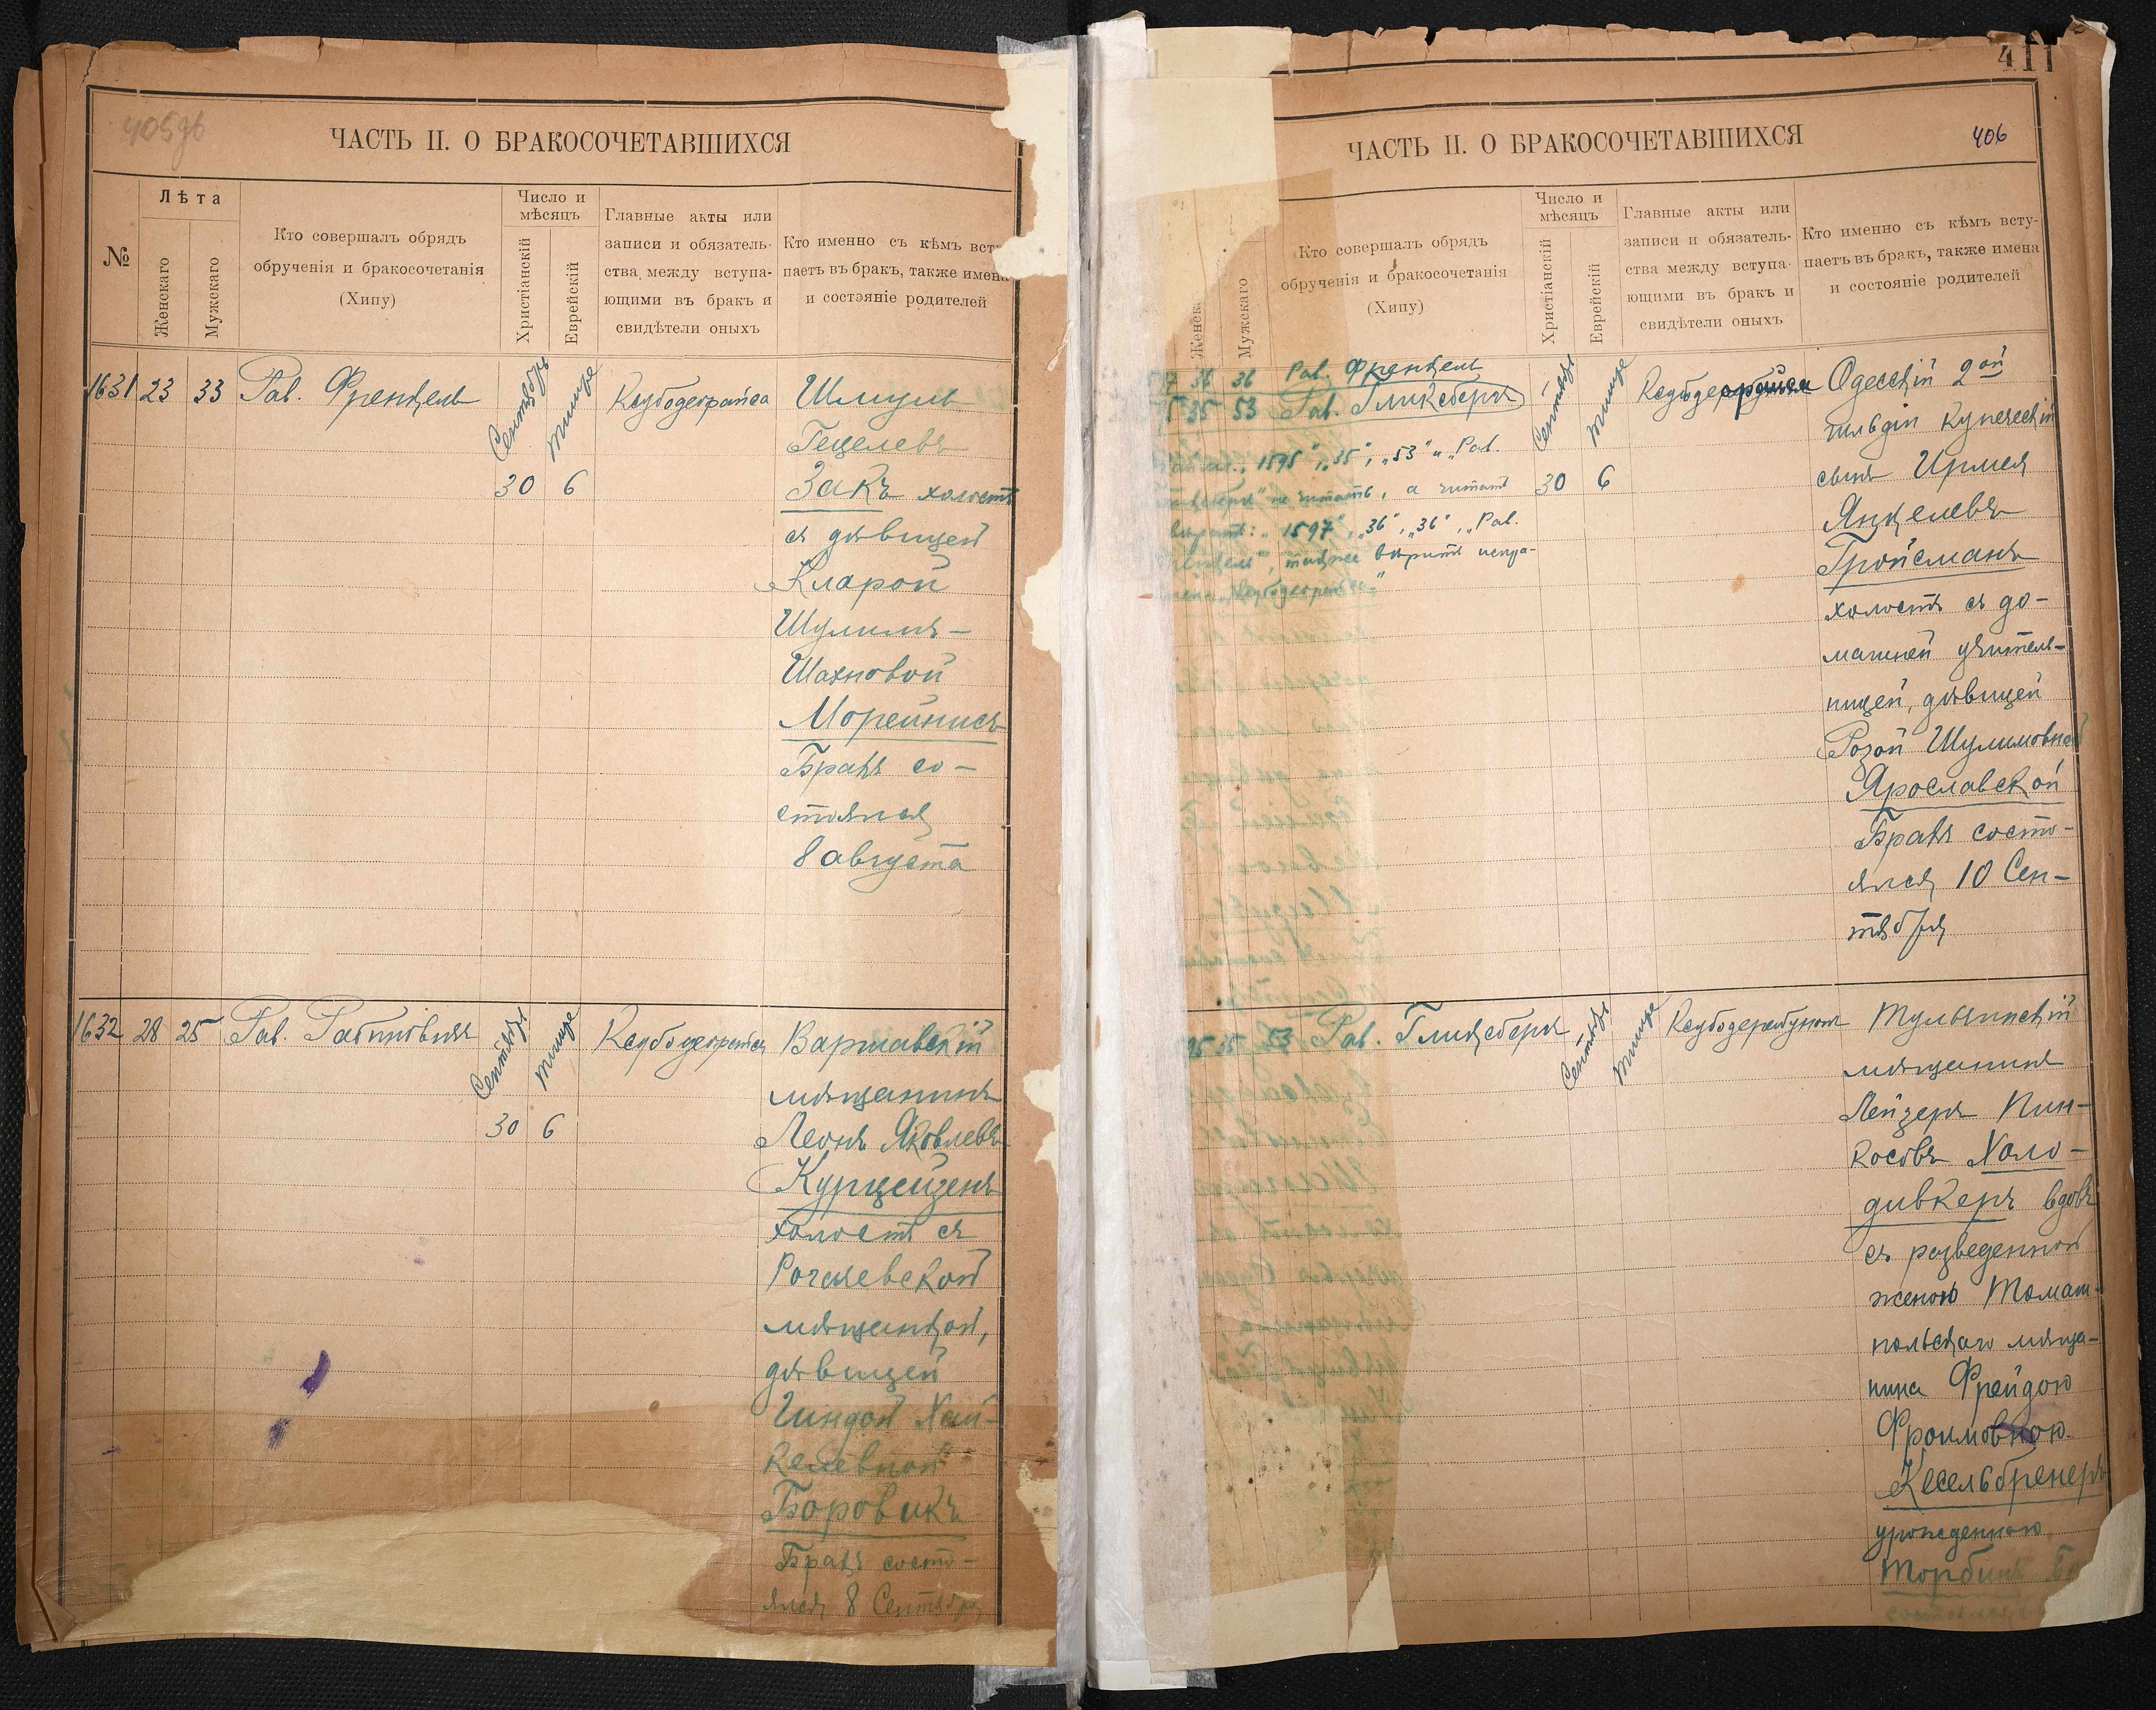 405об
ЧАСТЬ II. О БРАКОСОЧЕТАВШИХСЯ
№
Лѣта
Женскаго
Мужскаго
Кто совершалъ обрядъ
обрученія и бракосочетанія
(Хипу)
Число и
мѣсяцъ
Христіанскій
Еврейскій
Главные акты или
записи и обязатель-
ства между вступа-
ющими въ бракъ и
свидѣтели оныхъ
Кто именно съ кѣмъ всту
паетъ въ бракъ, также имена
и состояніе родителей
1631 23 33 Рав. Френкель
Сентябрь
Тишре
30 6
Ксубодеорайса
Шмуль
Гецелевъ
Закъ холостъ
съ дѣвицей
Кларой
Шулимъ-
Шахновой
Морейнисъ
Бракъ со-
стоялся
8 августа
1632 28 25 Рав. Рабиновичъ
Сентябрь
Тишре
30 6
Ксубодеорайса
Варшавскій
мѣщанинъ
Леонъ Яковлевъ
Курцейзенъ
холостъ съ
Рогачевской
мѣщанкой,
дѣвицей
Гиндой Хай-
келевной
Боровикъ
Бракъ состо-
ялся 8 Сентября
411
406
ЧАСТЬ II. О БРАКОСОЧЕТАВШИХСЯ
Женска
Мужскаго
Кто совершалъ обрядъ
обрученія и бракосочетанія
(Хипу)
Число и
мѣсяцъ
Христіанскій
Еврейскій
Главные акты или
записи и обязатель-
ства между вступа-
ющими въ бракъ и
свидѣтели оныхъ
Кто именно съ кѣмъ всту-
паетъ въ бракъ, также имена
и состояніе родителей
97 36 36 Рав. Френкель
5 35 53 Рав. Гликсбергъ
„1595", „35", „53" и „Рав.
не читать, а читать
вѣрить: „1597", „36", „36", „Рав.
также вѣрить испра-
Сентябрь
Тишре
30 6
Ксубодеорайса
Одесскій 2ой
гильдіи купеческій
сынъ Ирмея
Янкелевъ
Гройсманъ
холостъ съ до-
машней учитель-
ницей, дѣвицей
Розой Шулимовной
Ярославской
Бракъ состо-
ялся 10 Сен-
тября
95 35 53 Рав. Гликсбергъ
Сентябрь
Тишре
Тульчинскій
мѣщанинъ
Лейзеръ Пин-
косовъ Холо-
дивкеръ вдовъ
съ разведенной
женою Томаш-
польскаго мѣща-
нина Фрейдою
Фроимовною
Кесельбренеръ
урожденною
Торбинъ